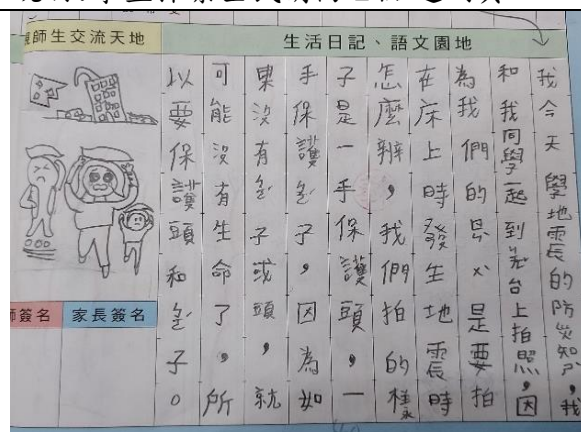 生活日記、語文園地
我今天學地震的防災知ㄕˋ,我
和我同學一起到台上拍照,因
為我們的是要拍
在床上時發生地震時
怎麼辦,我們拍的樣
子是一手保護頭,一
手保護ㄅㄛˊ子,因為如
果沒有ㄅㄛˊ子或頭,就
可能沒有生命了,所
以要保護頭和ㄅㄛˊ子。
師生交流天地
師簽名
家長簽名